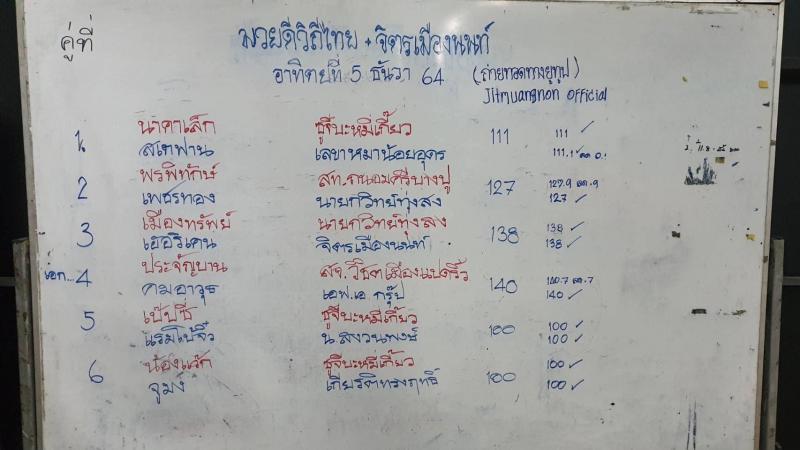 คู่ที่
มวยดีวิถีไทย + จิตรเมืองนนท์
อาทิตย์ที่ 5 ธันวา 64 (ถ่ายทอดทางยูทูป)
Jitmuangnon official
1. นาคาเล็ก ชูจีบะหมี่เกี๊ยว 111 111 ✓
สเทฟาน เลขาหมาน้อยอุดร 111.1 ลด 0.1
2 พรพิทักษ์ สท.ถนอมศรีบางปู 127 127.9 ลด .9
เพชรทอง นายกวิทย์ทุ่งสง 127 ✓
3 เมืองทรัพย์ นายกวิทย์ทุ่งสง 138 138 ✓
เฮอริเคน จิตรเมืองนนท์ 138 ✓
เอก... 4 ประจัญบาน สจ.วิชิตเมืองแปดริ้ว 140 140.7 ลด .7
คมอาวุธ เอฟ.เอ.กรุ๊ป 140 ✓
5 เป๊ปซี่ ชูจีบะหมี่เกี๊ยว 100 100 ✓
แรมโบ้จิ๋ว น.สงวนพงษ์ 100 ✓
6 น้องแว๊ก ชูจีบะหมี่เกี๊ยว 100 100 ✓
จูมง เกียรติทรงฤทธิ์ 100 ✓